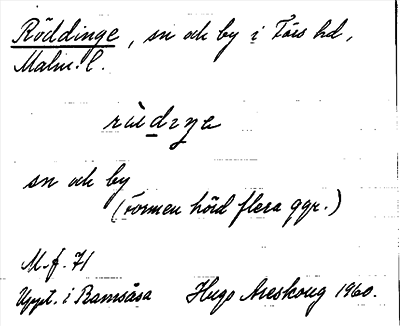 Röddinge, sn och by i Färs hd,
Malm. l.
rùdiŋe
sn och by
(Formen hörd flera ggr.)
M.f. 71
Uppt. i Ramsåsa Hugo Areskoug 1960.